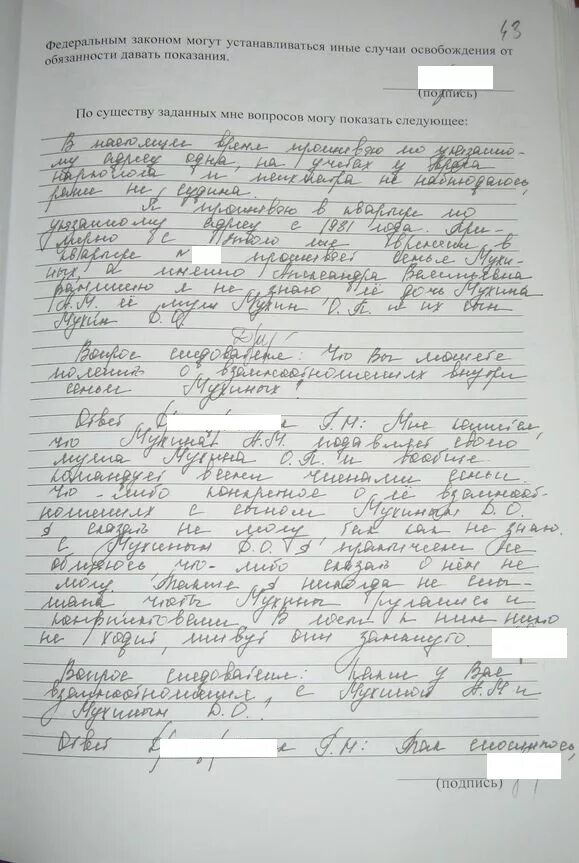 43
Федеральным законом могут устанавливаться иные случаи освобождения от
обязанности давать показания.
(подпись)
По существу заданных мне вопросов могу показать следующее:
В настоящее время проживаю по указанно-
му адресу одна, на учетах у врача
нарколога и психиатра не наблюдаюсь,
ранее не судима.
Я проживаю в квартире по
указанному адресу с 1981 года. При-
мерно с этого же времени в
квартире № проживает семья Мухи-
ных, а именно Александра Васильевна
фамилию я не знаю, её дочь Мухина
А.М. её муж Мухин О.П. и их сын
Мухин Д.О.
Вопрос следователя: Что Вы можете
пояснить о взаимоотношениях внутри
семьи Мухиных?
Ответ Г.Н: Мне кажется,
что Мухина А.М. подавляет своего
мужа Мухина О.П. и вообще
командует всеми членами семьи.
Что-либо конкретное о её взаимоот-
ношениях с сыном Мухиным Д.О.
я сказать не могу, так как не знаю.
С Мухиным Д.О. я практически не
общаюсь, что-либо сказать о нём не
могу. Также я никогда не слы-
шала чтобы Мухины ругались и
конфликтовали. В гости к ним никто
не ходит, живут они замкнуто.
Вопрос следователя: Какие у Вас
взаимоотношения с Мухиной А.М и
Мухиным Д.О.
Ответ Г.Н: Так сложилось,
(подпись)